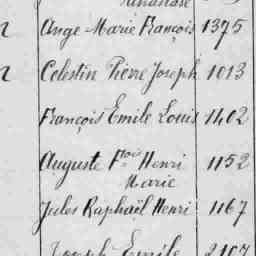 Ange Marie François 1375
Celestin Pierre Joseph 1013
François Emile Louis 1402
Auguste Fçois Henri 1152
Marie
Jules Raphaël Henri 1167
Joseph Emile 2107